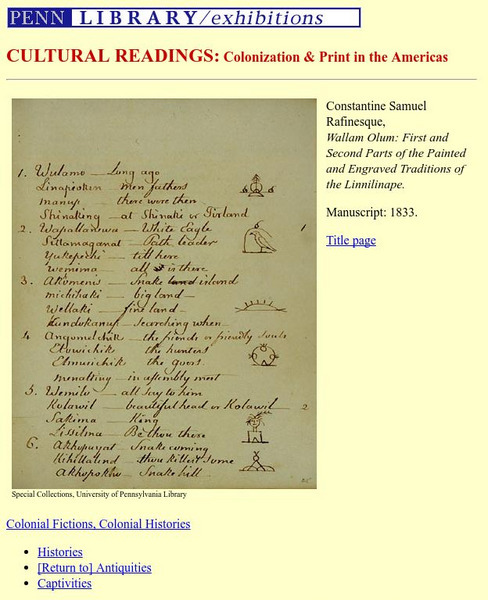 PENN LIBRARY/exhibitions
CULTURAL READINGS: Colonization & Print in the Americas
1. Wulamo — Long ago
Linapioken men fathers
manup — there were then
Shinaking — at Shinaki or Firland
2. Wapallanewa — White Eagle
Sittamaganat — Path leader
Yukepechi — till here
wemima — all is there
3. Akomenis — Snake land island
michihaki — big land —
Wellaki — fine land —
Kundokanup — Searching when —
4 Angomelchik — the friends or friendly souls
Elowichik the hunters
Elmusichik the goers
menalting — in assembly meet
5. Wemilo — all say to him
Kolawil — beautiful head or Kolawil 2
Sakima — King
Lissilma — Be thou there
6. Akhopayat — Snake coming
Kihillalend thou killest some
Akhopokho — Snake hill
Special Collections, University of Pennsylvania Library
Constantine Samuel
Rafinesque,
Wallam Olum: First and
Second Parts of the Painted
and Engraved Traditions of
the Linnilinape.
Manuscript: 1833.
Title page
Colonial Fictions, Colonial Histories
Histories
[Return to] Antiquities
Captivities